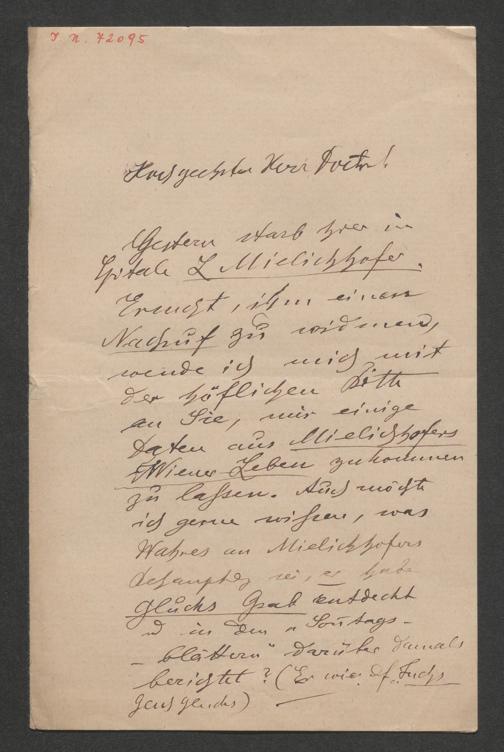 I. N. 72095
Hochgeehrter Herr Doctor!
Gestern starb hier im
Spitale L Mielichhofer.
Ersucht, ihm einen
Nachruf zu widmen,
wende ich mich mit
der höflichen Bitte
an Sie, mir einige
Daten aus Mielichhofers
Wiener Leben zukommen
zu lassen. Auch möchte
ich gerne wissen, was
Wahres an Mielichhofers
Behauptg sei, er habe
Glucks Grab entdeckt
u in den "Sontags-
-blättern" darüber damals
berichtet? (Er wies auf Fuchs
)